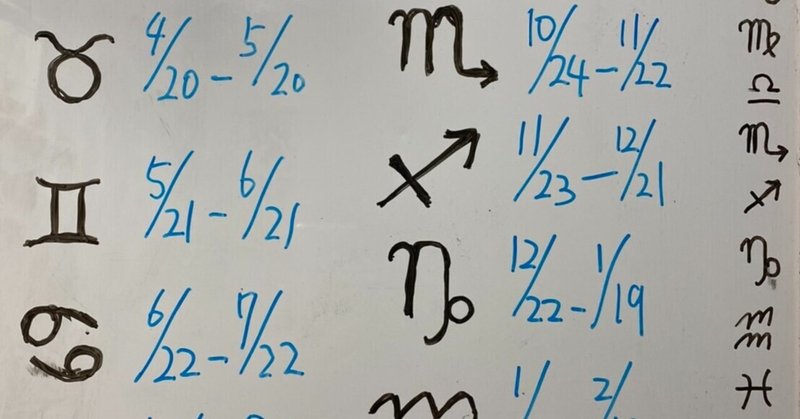 ♉ 4/20-5/20
♊ 5/21-6/21
♋ 6/22-7/22
♏ 10/24-11/22
♐ 11/23-12/21
♑ 12/22-1/19
1/ 2/
♍
♎
♏
♐
♑
♒
♓